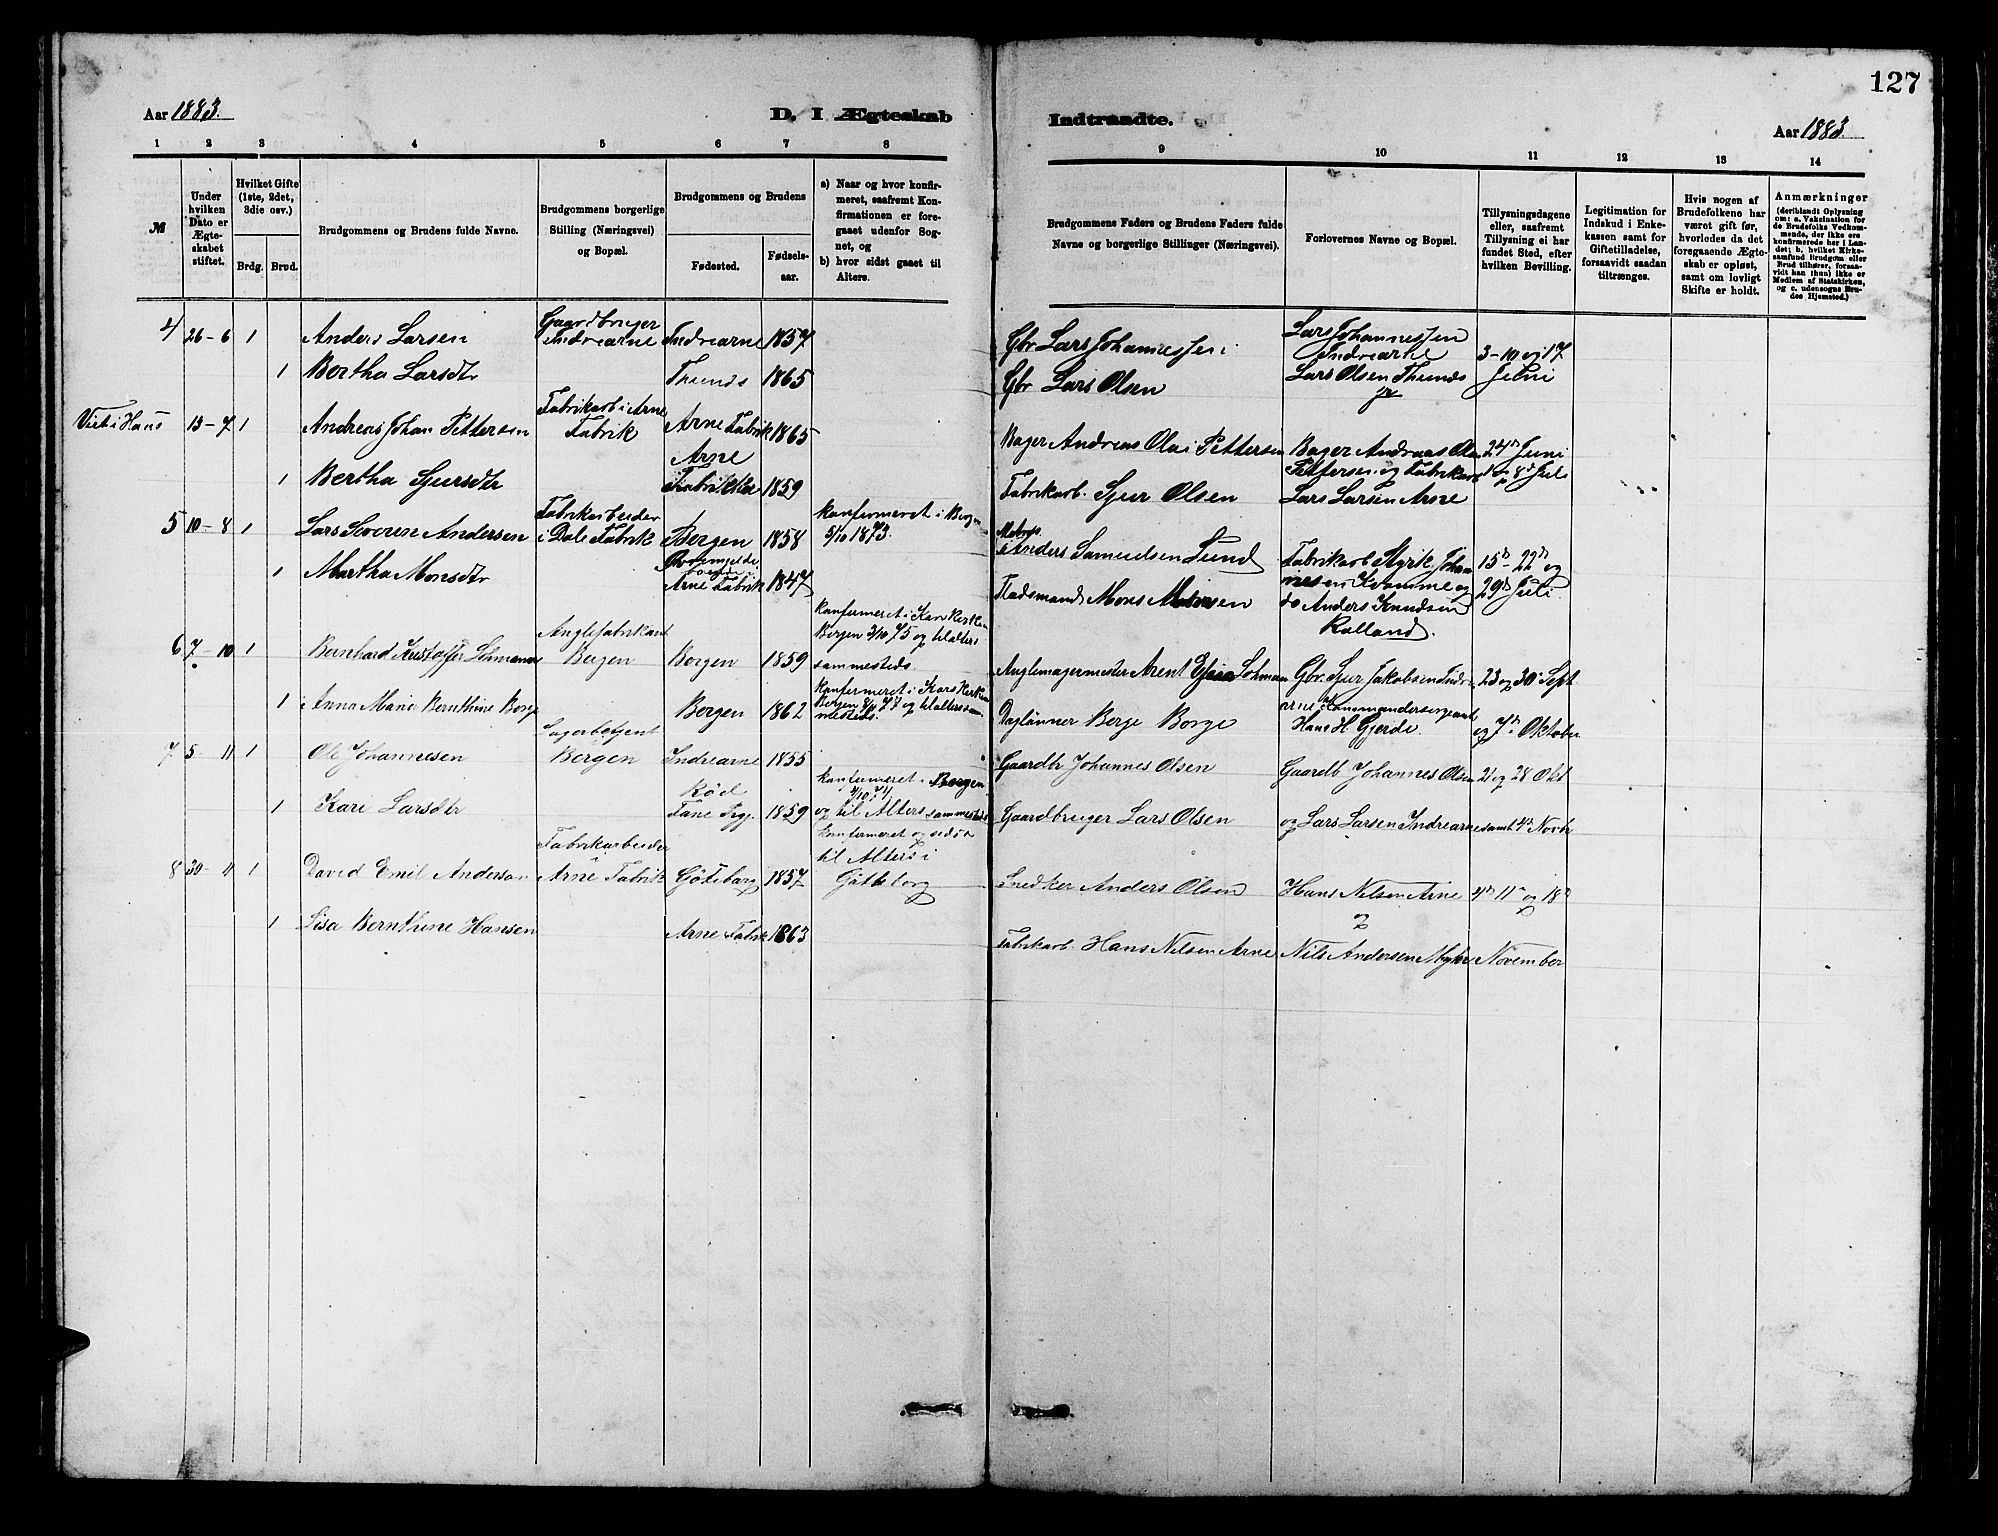 127
Aar 1883.
D. I Ægteskab
Indtraadte.
Aar 1883.
1 2 3 4 5 6 7 8
9 10 11 12 13 14
№
Under hvilken Dato er Ægteskabet stiftet.
Hvilket Gifte (1ste, 2det, 3die osv.)
Brdg. Brud.
Brudgommens og Brudens fulde Navne.
Brudgommens borgerlige Stilling (Næringsvei) og Bopæl.
Brudgommens og Brudens
Fødested.
Fødselsaar.
a) Naar og hvor konfirmeret, saafremt Konfirmationen er foregaaet udenfor Sognet, og
b) hvor sidst gaaet til Alters.
Brudgommens Faders og Brudens Faders fulde Navne og borgerlige Stillinger (Næringsvei).
Forlovernes Navne og Bopæl.
Tillysningsdagene eller, saafremt Tillysning ei har fundet Sted, efter hvilken Bevilling.
Legitimation for Indskud i Enkekassen samt for Giftetilladelse, forsaavidt saadan tiltrænges.
Hvis nogen af Brudefolkene har været gift før, hvorledes da det foregaaende Ægteskab er opløst, samt om lovligt Skifte er holdt.
Anmærkninger
(deriblandt Oplysning om: a. Vakcination for de Brudefolks Vedkommende, der ikke ere konfirmerede her i Landet; b. hvilket Kirkesamfund Brudgom eller Brud tilhører, forsaavidt han (hun) ikke er Medlem af Statskirken, og c. udensogns Brudes Hjemsted.)
4 26-6 1 Anders Larsen Gaardbruger Indrearne Indrearne 1857
Gbr Lars Johannessen Lars Johannessen Indrearne 3-10 og 17
1 Bertha Larsdtr Thunds 1865
Gbr Lars Olsen Lars Olsen Thunds Juni
Viet i Haus 13-7 1 Andreas Johan Pettersen Fabrikarb i Arne Fabrik Arne Fabrik 1865
Bager Andreas Olai Pettersen Bager Andreas Olai Pettersen og Fabrikarb 24de Juni
1 Bertha Sjursdtr Arne Fabrikker 1859
Fabrikarb. Sjur Olsen Lars Larsen Arne
5 10-8 1 Lars Severin Andersen Fabrikarbeider i Dale Fabrik Bergen 1858 Konfermeret i Bergen 5/10 1873.
Anders Samuelsen Lund Fabrikarb Styrik Johannesen Kvamme og 15de - 22de og
1 Martha Monsdtr Arne Fabrik 1847
Pladsmand Mons Monsen Anders Knudsen Kalland. 29de Juli
6 7-10 1 Bernhard Kristoffer Sohmann Anglefabrikant Bergen Bergen 1859 Konfermeret i Korskerken Bergen 3/10 75 og til alters sammesteds
Anglemagermester Arent Sohmann Gbr. Sjur Jakobsen Indre 23 og 30 Sept
1 Anna Marie Bernthine Borge Bergen 1862 Konfermeret i Kors Kerken Bergen 8/10 77 og til alters sammesteds.
Daglønner Berge Borge arne Kommandersergeant Hans H Gjerde. og 7de Oktober
7 5-11 1 Ole Johannesen Lagerbetjent Bergen Indrearne 1855
Gaardbr Johannes Olsen Gaardb Johannes Olsen 21 og 28 Okt
1 Kari Larsdtr Rød Fane Prgj. 1859 Konfermeret i Bergen og til Alters sammesteds
Gaardbruger Lars Olsen og Lars Larsen Indrearne samt 4de Novbr
8 30-11 1 David Emil Anderson Fabrikarbeider Arne Fabrik Göteborg 1857 Konfermeret og sidst til Alters i Götteborg
Snedker Anders Olsen Hans Nilsen Arne og 4de 11te og 18de
1 Lisa Bernthine Hansen Arne Fabrik 1863
Fabrikarb. Hans Nilsen Arne Nils Andersen November